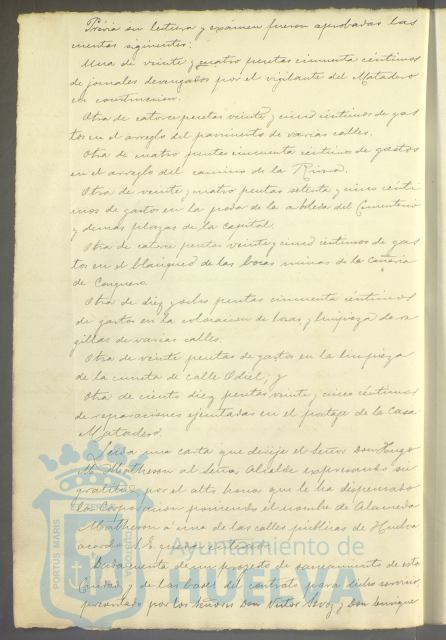 Prévia su lectura y exámen fueron aprobadas las
cuentas siguientes:
Una de veinte y cuatro pesetas cincuenta céntimos
de jornales devengados por el vigilante del Matadero
en construccion.
Otra de catorce pesetas veinte y cinco céntimos de gas
tos en el arreglo del pavimento de varias calles.
Otra de cuatro pesetas cincuenta céntimos de gastos
en el arreglo del camino de la
Otra de veinte y cuatro pesetas setenta y cinco cénti
mos de gastos en la poda de la arboleda del Cementerio
y demas plazas de la capital.
Otra de catorce pesetas veinte y cinco céntimos de gas
tos en el blanqueo de las bocas minas de la cañeria
de Conquero.
Otra de diez y ocho pesetas cincuenta céntimos
de gastos en la colocacion de losas y limpieza de re
gillas de varias calles.
Otra de veinte pesetas de gastos en la limpieza
de la cuneta de calle Odiel; y
Otra de ciento diez pesetas veinte y cinco céntimos
de reparaciones ejecutadas en el de la Casa
Matadero.
Leida una carta que dirije el Señor Don Hugo
M. Matheson al Señor Alcalde expresando su
gratitud por el alto honor que le ha dispensado
la Corporacion poniendo el nombre de Alameda
Matheson á una de las calles públicas de Huelva
acordó S.E. quedar enterado.
Dada cuenta de un proyecto de saneamiento de esta
Ciudad y de las bases del contrato para dicho servicio,
presentado por los Señores Don Victor y Don Enrique
Ayuntamiento de
HUELVA
PORTUS MARIS